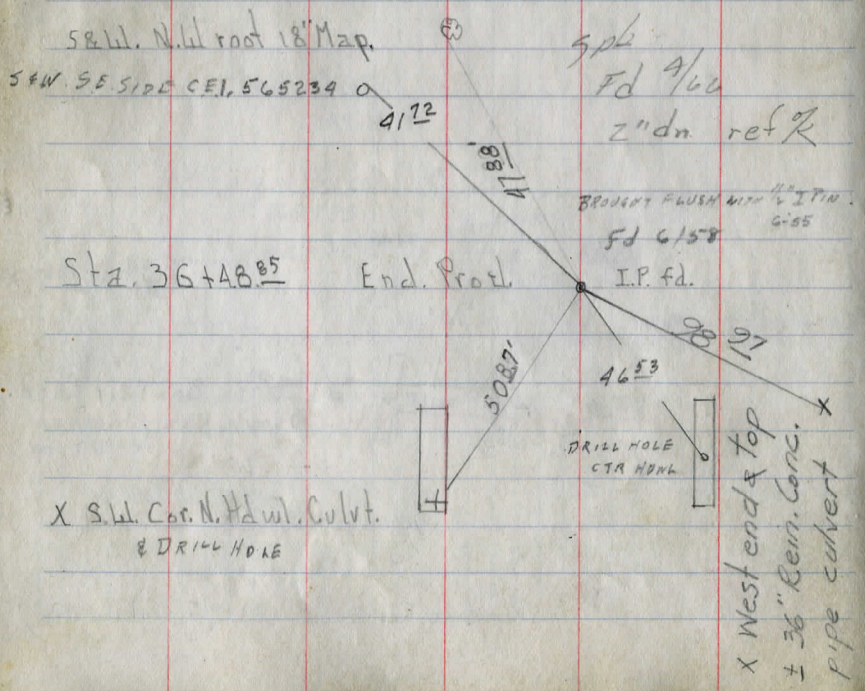 S&W. N.W root 18" Map.
S&W. S.E. SIDE CEI. 565234
41 72
47 88'
Spk
Fd 4/66
2" dn ref
BROUGHT FLUSH WITH I PIN
6-55
fd 6/58
Sta. 36+48.85
End. Prod.
I.P. fd.
98 97
46 53
50.87'
DRILL HOLE
CTR HDWL
X S.W. Cor. N. Hdwl. Culvt.
& DRILL HOLE
x West end & top
± 36" Rein. Conc.
pipe culvert